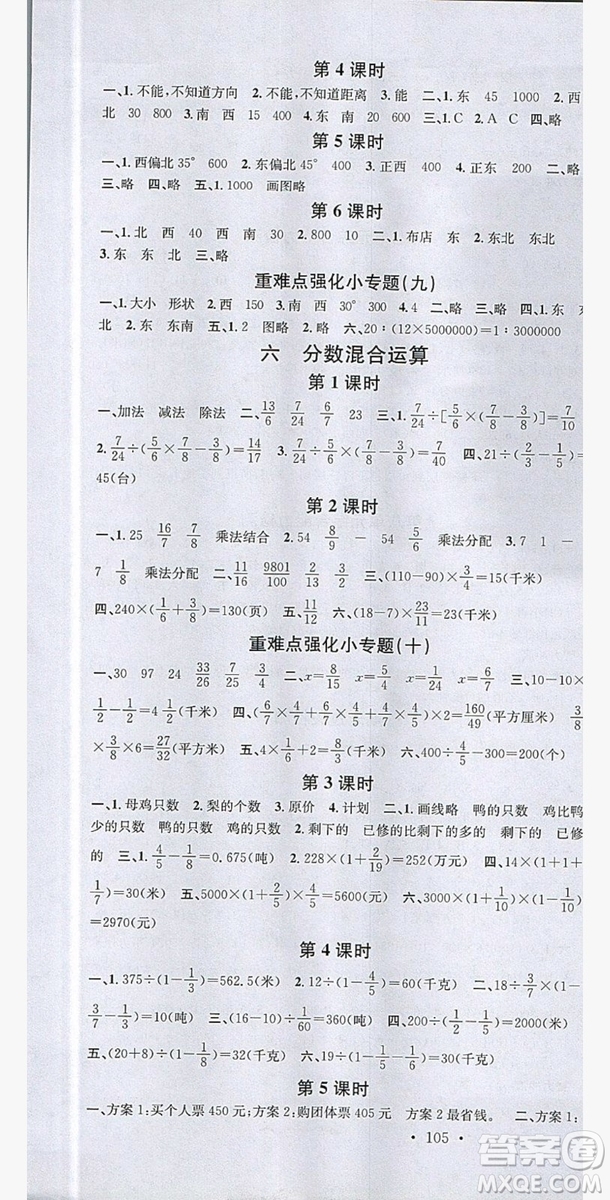 第4课时
一、1.不能,不知道方向 2.不能,不知道距离 3.能 二、1.东 45 1000 2.西
北 30 800 3.南 西 15 400 4.东 南 20 600 三、1.C 2.A C 四、略
第5课时
一、1.西偏北35° 600 2.东偏北45° 400 3.正西 400 4.正东 200 二、略
三、略 四、略 五、1.1000 画图略
第6课时
一、1.北 西 40 西 南 30 2.800 10 二、1.布店 东 2.东北 东北
3.东 东北 三、略
重难点强化小专题(九)
一、1.大小 形状 2.西 150 3.南 西 30° 300 二、略 三、略 四、1.东
2.东 东南 五、1.2 图略 2.略 六、20:(12×5000000)=1:3000000
六 分数混合运算
第1课时
一、加法 减法 除法 二、13/6 7/24 7/6 23 三、1.7/24÷[5/6×(7/8-3/8)]=7/10
2.7/24÷(5/6×7/8-3/8)=14/17 3.7/24÷5/6×(7/8-3/8)=7/40 四、21÷(2/3-1/5)=
45(台)
第2课时
一、1.25 16/7 7/8 乘法结合 2.54 8/9 - 54 乘法分配 3.7 1 -
7 1/8 乘法分配 二、11/12 9801/100 26 三、(110-90)×3/4=15(千米)
四、240×(1/6+3/8)=130(页) 五、11/12 六、(18-7)×23/11=23(千米)
重难点强化小专题(十)
一、30 97 24 33/26 7/8 3/4 二、x=8/15 x=4/5 x=1/24 x=6/7 三、10-10×
1/2-1/2=4 1/2(千米) 四、(6/7×4/7+6/7)×2=160/49(平方厘米) 3/8
×3/8×6=27/32(平方米) 五、4×1/6+2=8/3 六、400÷4/5-300=200(千米)
第3课时
一、1.母鸡只数 2.梨的个数 3.原价 4.计划 二、1.画线略 鸭的只数 鸡比鸭
少的只数 鸭的只数 鸡的只数 2.剩下的 已修的比剩下的多的 剩下的 已修
的 三、1.4/5-1/8=0.675(吨) 2.228×(1+2/19)=252(万元) 四、14×(1+1+
1/7)=30(米) 五、5000×(1-1/5+2/5)=5600(元) 六、3000×(1+1/10)×(1-1/10)
=2970(元)
第4课时
一、1.375÷(1-1/3)=562.5(米) 2.12÷(1-4/5)=60(千克) 二、18÷3/7×(1-
3/7-1/3)=10(吨) 三、(16-10)÷1/60=360(米) 四、200÷(1/2-1/5)=2000(米)
五、(20+8)÷(1-1/8)=32(千克) 六、19÷(1-1/3-1/5)=60(千克)
第5课时
一、方案1:买个人票450元;方案2:购团体票405元 方案2最省钱。 二、方案1:
· 105 ·
答案圈
MXQE.COM